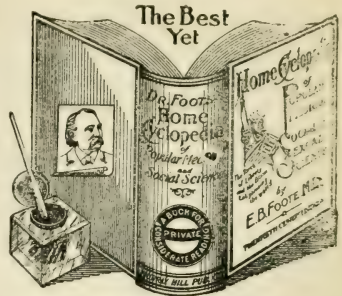 The Best
Yet
DR. FOOTE'S
Home
Cyclopedia
of
Popular Med
and
Social Science
A BOOK FOR
PRIVATE
CONSIDERATE READING
MURRAY HILL PUB.
Home Cyclop
of
Popular
Social
Sexual
Science
by
E.B. FOOTE M.D.
TWENTIETH CENTURY